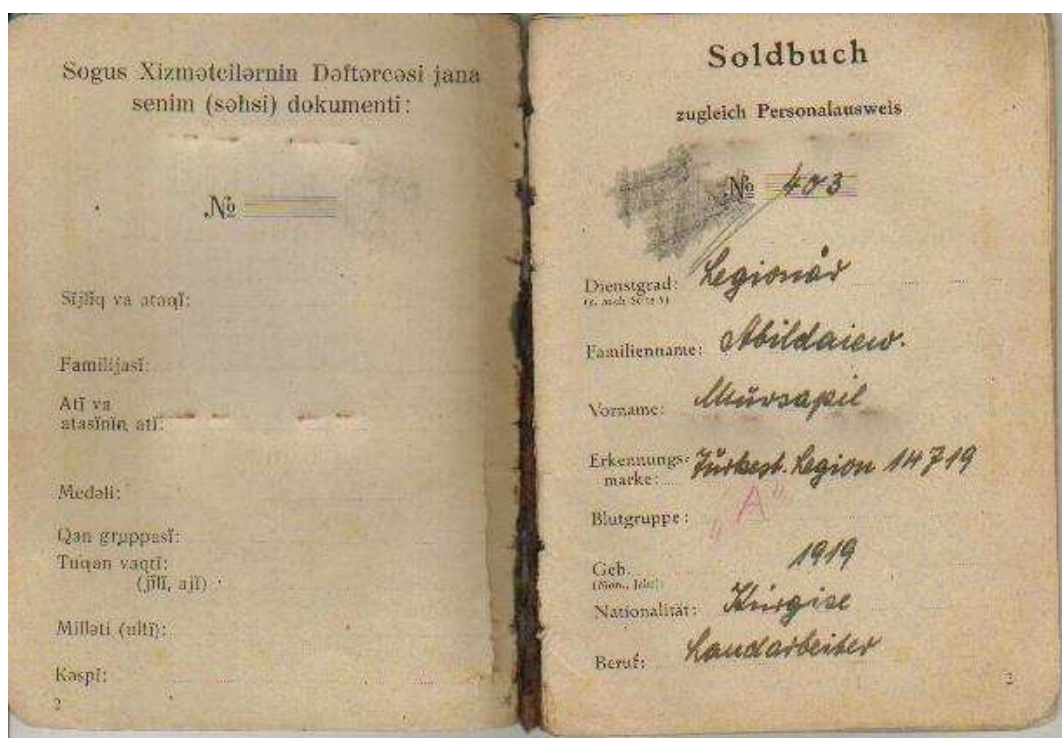 Sogus Xizmətcilərnin Dəftərcəsi jana
senim (səhsi) dokumenti:
№
Sījlīq va ataqī:
Familijasī:
Atī va
atasīnīn atī:
Medəli:
Qan gruppasī:
Tuqan vaqtī:
(jīlī, ajī)
Milləti (ultī):
Kəspī:
2
Soldbuch
zugleich Personalausweis
№ 403
Dienstgrad: Legionär
(s. auch Seite 3)
Familienname: Abildaiew.
Vorname: Mürsapil
Erkennungs-
marke: Türkest. Legion 14719
Blutgruppe: „A"
Geb. 1919
(Mon., Jahr)
Nationalität: Kirgise
Beruf: Landarbeiter